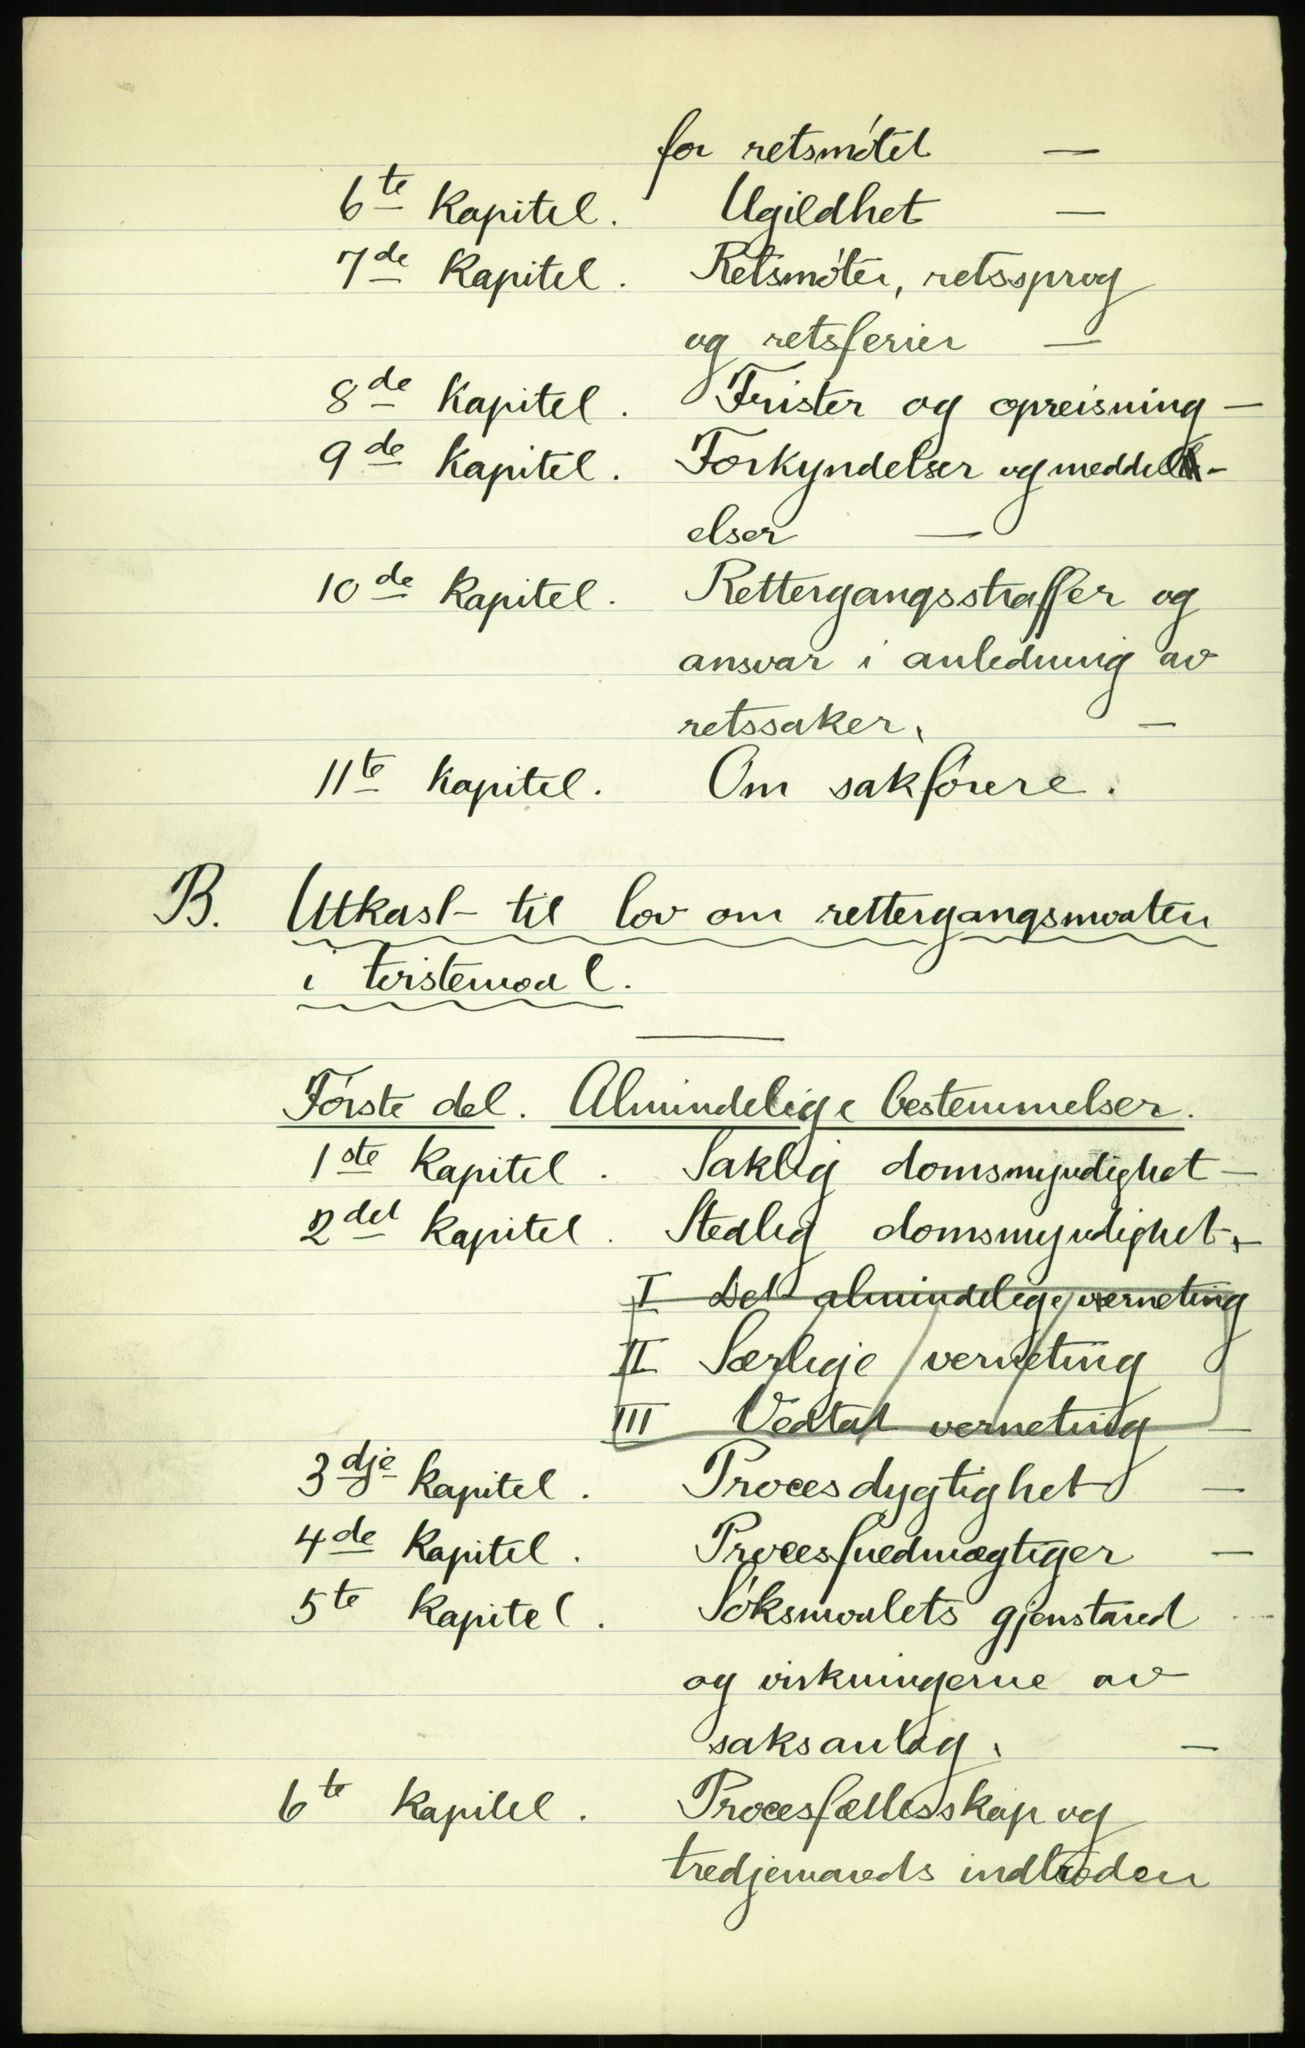 for retsmötet —
6te Kapitel. Ugildhet —
7de Kapitel. Retsmöter, retssprog
og retsferier —
8de Kapitel. Frister og opreisning —
9de Kapitel. Forkyndelser og meddel-
elser —
10de Kapitel. Rettergangsstraffer og
ansvar i anledning av
retssaker. —
11te Kapitel. Om sakförere.
B. Utkast til lov om rettergangsmaaten
i tvistemaal.
Förste del. Almindelige bestemmelser.
1ste Kapitel. Saklig domsmyndighet —
2det Kapitel. Stedlig domsmyndighet. —
I Det almindelige verneting
II Særlige verneting
III Vedtat verneting —
3dje Kapitel. Procesdygtighet —
4de Kapitel. Procesfuldmægtiger —
5te Kapitel. Söksmaalets gjenstand
og virkningerne av
saksanlæg. —
6te Kapitel. Procesfællesskap og
tredjemands indtræden